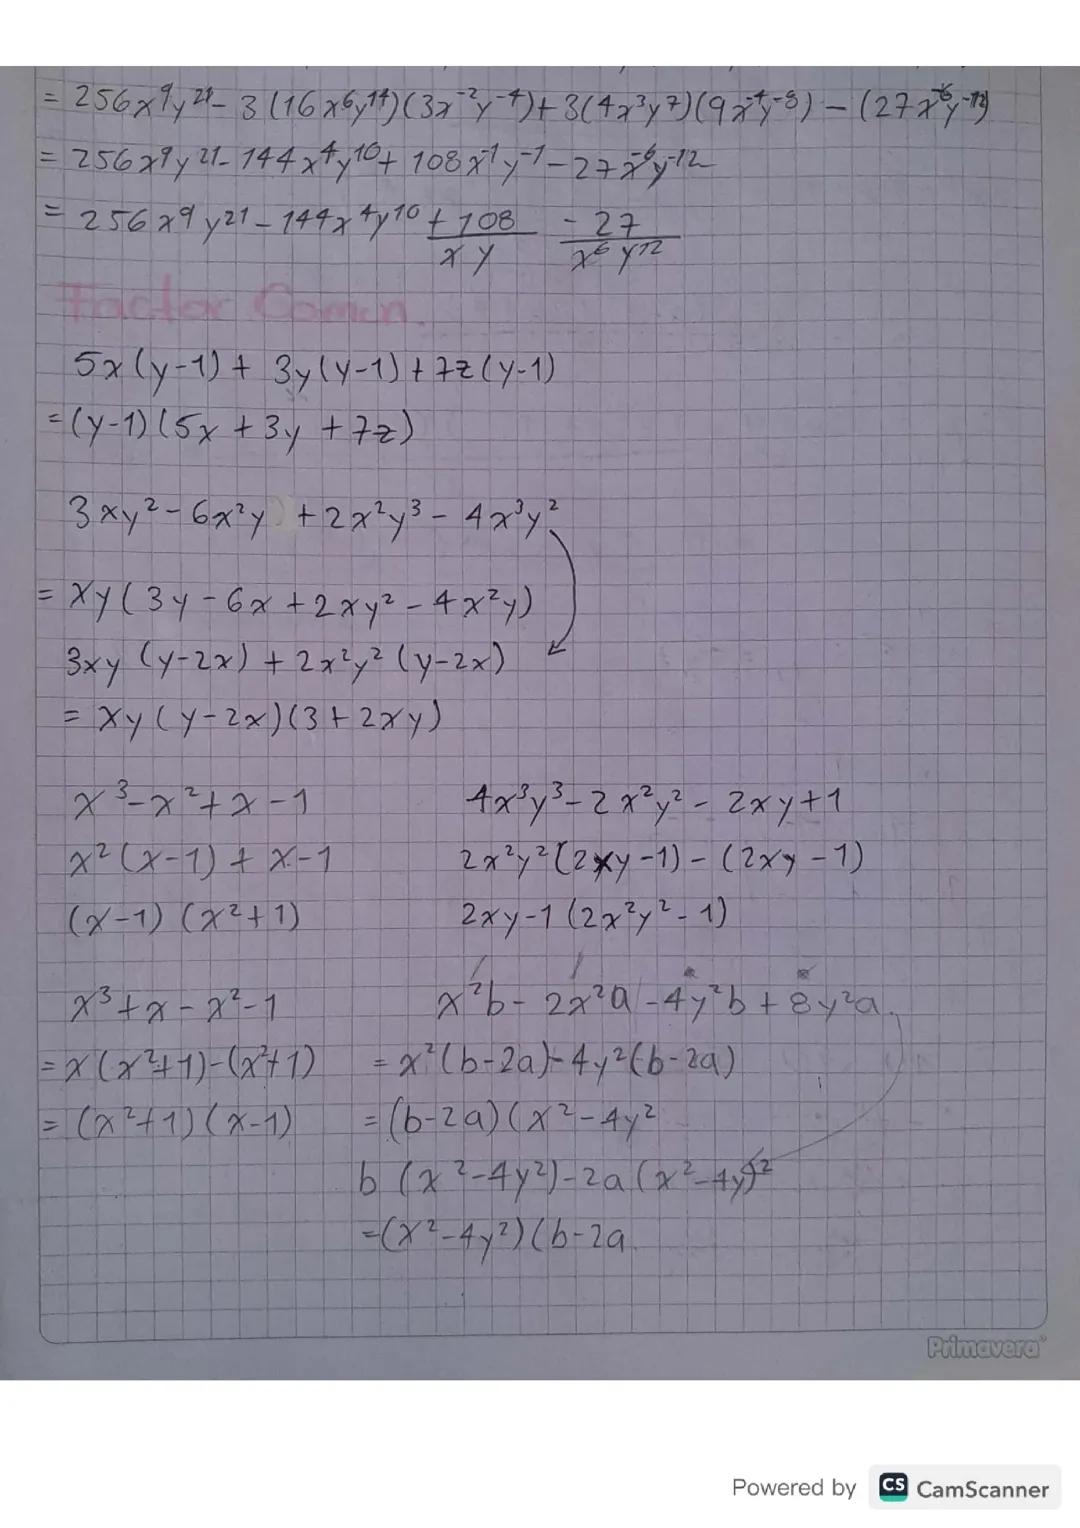 = 256x⁹y²¹- 3(16x⁶y¹⁴)(3x⁻²y⁻⁴)+ 3(4x³y⁷)(9x⁻⁴y⁻⁸) - (27x⁻⁶y⁻¹²)
= 256x⁹y²¹- 144x⁴y¹⁰+ 108x⁻¹y⁻¹ - 27x⁻⁶y⁻¹²
= 256x⁹y²¹ - 144x⁴y¹⁰ + 108 - 27
xy x⁶y¹²
Factor Comun.
5x(y-1) + 3y(y-1) + 7z(y-1)
= (y-1)(5x + 3y + 7z)
3xy² - 6x²y + 2x²y³ - 4x³y²
= xy(3y - 6x + 2xy² - 4x²y)
3xy (y-2x) + 2x²y² (y-2x)
= xy(y-2x)(3+2xy)
x³-x²+x-1
x²(x-1) + x-1
(x-1) (x²+1)
4x³y³-2x²y² - 2xy+1
2x²y²(2xy-1) - (2xy-1)
2xy-1 (2x²y²-1)
x³+x-x²-1
= x(x²+1)-(x²+1)
= (x²+1)(x-1)
x²b - 2x²a - 4y²b + 8y²a.
= x²(b-2a)-4y²(b-2a)
= (b-2a)(x²-4y²
b (x²-4y²)-2a(x²-4y)²
=(x²-4y²)(b-2a
Primavera®
Powered by CS CamScanner